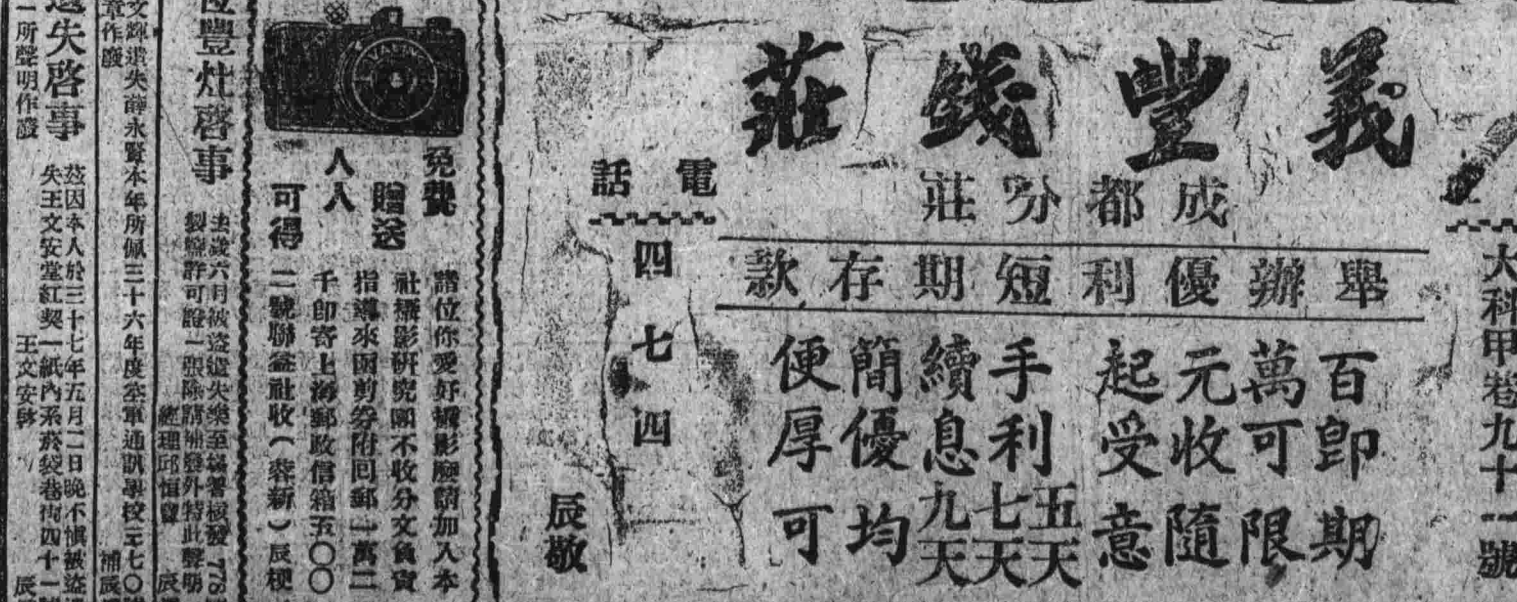 大科甲巷九十一號
義豐錢莊
成都分莊
舉辦優利短期存款
百萬元起
即可收受
期限隨意
五天
七天
九天
手續簡便
利息優厚
均可
電話
四七四
辰敬
免費
贈送
人人
可得
諸位你愛好攝影麼請加入本
社攝影研究團不收分文負責
指導來函剪券附回郵一萬二
千即寄上海郵政信箱五〇〇
二號聯益社收(蓉新)辰梗
豐灶啓事
製鹽許可證一張除請補發外特此聲明
經理邱恒豐 辰
文輝遺失薛永賢本年所佩三十六年度空軍通訊學校三七〇
章作廢 補辰
遺失啓事
茲因本人於三十七年五月二日晚不慎被盜
失王文安堂紅契一紙內系菸袋巷街四十一
一所聲明作廢 王文安啓 辰